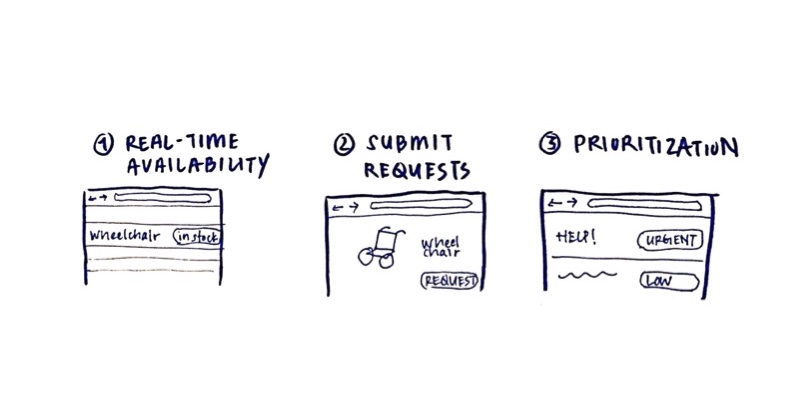 ① REAL-TIME
AVAILABILITY
wheelchair in stock
② SUBMIT
REQUESTS
wheel
chair
REQUEST
③ PRIORITIZATION
HELP! URGENT
LOW